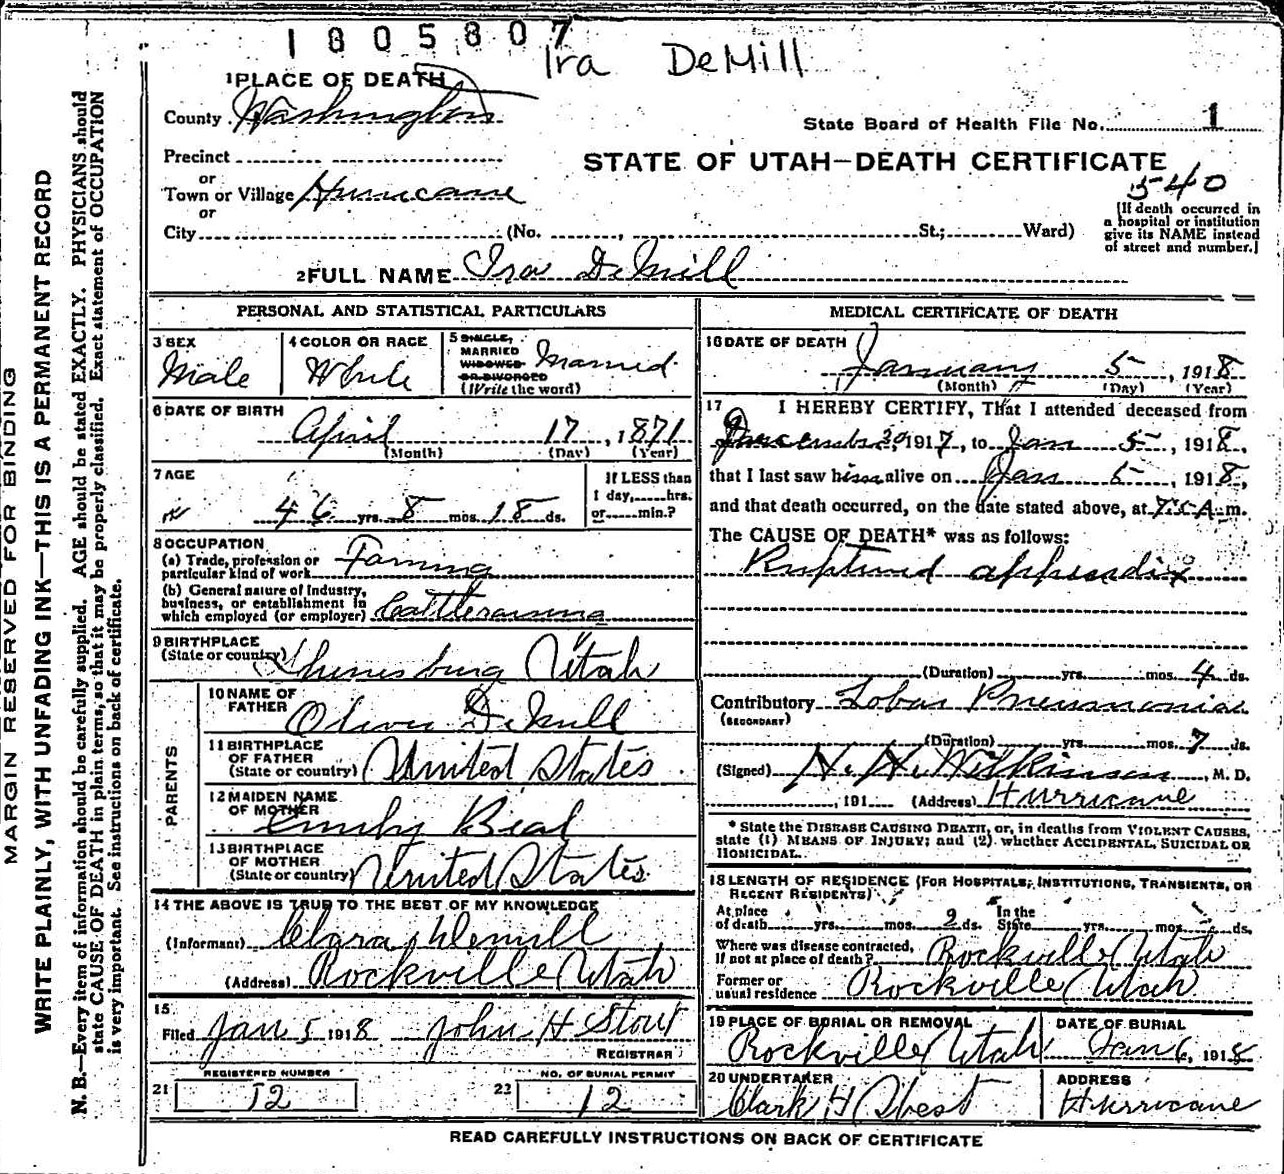 1805807
Ira DeMill
1 PLACE OF DEATH
County Washington
State Board of Health File No. 1
Precinct
STATE OF UTAH—DEATH CERTIFICATE
540
or
Town or Village Hurricane
or
City (No. , St.; Ward)
(If death occurred in
a hospital or institution
give its NAME instead
of street and number.)
2 FULL NAME Ira DeMill
PERSONAL AND STATISTICAL PARTICULARS
3 SEX
Male
4 COLOR OR RACE
White
5 SINGLE,
MARRIED
WIDOWED
OR DIVORCED
(Write the word)
Married
6 DATE OF BIRTH
April 17, 1871
(Month) (Day) (Year)
7 AGE
46 yrs. 8 mos. 18 ds.
If LESS than
1 day,.....hrs.
or.....min.?
8 OCCUPATION
(a) Trade, profession or
particular kind of work Farming
(b) General nature of Industry,
business, or establishment in
which employed (or employer) Cattleraising
9 BIRTHPLACE
(State or country) Shunesburg Utah
PARENTS
10 NAME OF
FATHER
Oliver DeMill
11 BIRTHPLACE
OF FATHER
(State or country) United States
12 MAIDEN NAME
OF MOTHER
Emily Beal
13 BIRTHPLACE
OF MOTHER
(State or country) United States
14 THE ABOVE IS TRUE TO THE BEST OF MY KNOWLEDGE
(Informant) Clara Demill
(Address) Rockville Utah
15
Filed Jan 5 1918 John H Stout
REGISTRAR
REGISTERED NUMBER
21 12
NO. OF BURIAL PERMIT
22 12
MEDICAL CERTIFICATE OF DEATH
16 DATE OF DEATH
January 5, 1918
(Month) (Day) (Year)
17 I HEREBY CERTIFY, That I attended deceased from
December 30, 1917, to Jan 5, 1918,
that I last saw him alive on Jan 5, 1918,
and that death occurred, on the date stated above, at A m.
The CAUSE OF DEATH* was as follows:
Ruptured appendix
(Duration) yrs. mos. 4 ds.
Contributory Lobar Pneumonia
(SECONDARY)
(Duration) yrs. mos. 7 ds.
(Signed) Wilkinson, M. D.
, 191 (Address) Hurricane
* State the DISEASE CAUSING DEATH, or, in deaths from VIOLENT CAUSES,
state (1) MEANS OF INJURY; and (2) whether ACCIDENTAL, SUICIDAL OR
HOMICIDAL.
18 LENGTH OF RESIDENCE (FOR HOSPITALS, INSTITUTIONS, TRANSIENTS, OR
RECENT RESIDENTS)
At place
of death yrs. mos. 2 ds. In the
State yrs. mos. ds.
Where was disease contracted,
if not at place of death? Rockville Utah
Former or
usual residence Rockville Utah
19 PLACE OF BURIAL OR REMOVAL
Rockville Utah
DATE OF BURIAL
Jan 6, 1918
20 UNDERTAKER
Clark H
ADDRESS
Hurricane
READ CAREFULLY INSTRUCTIONS ON BACK OF CERTIFICATE
MARGIN RESERVED FOR BINDING
WRITE PLAINLY, WITH UNFADING INK—THIS IS A PERMANENT RECORD
N. B.—Every item of information should be carefully supplied. AGE should be stated EXACTLY. PHYSICIANS should
state CAUSE OF DEATH in plain terms, so that it may be properly classified. Exact statement of OCCUPATION
is very important. See instructions on back of certificate.